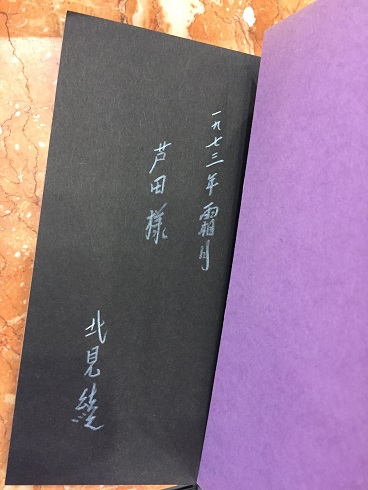 一九七三年霜月
芦田様
北見綾